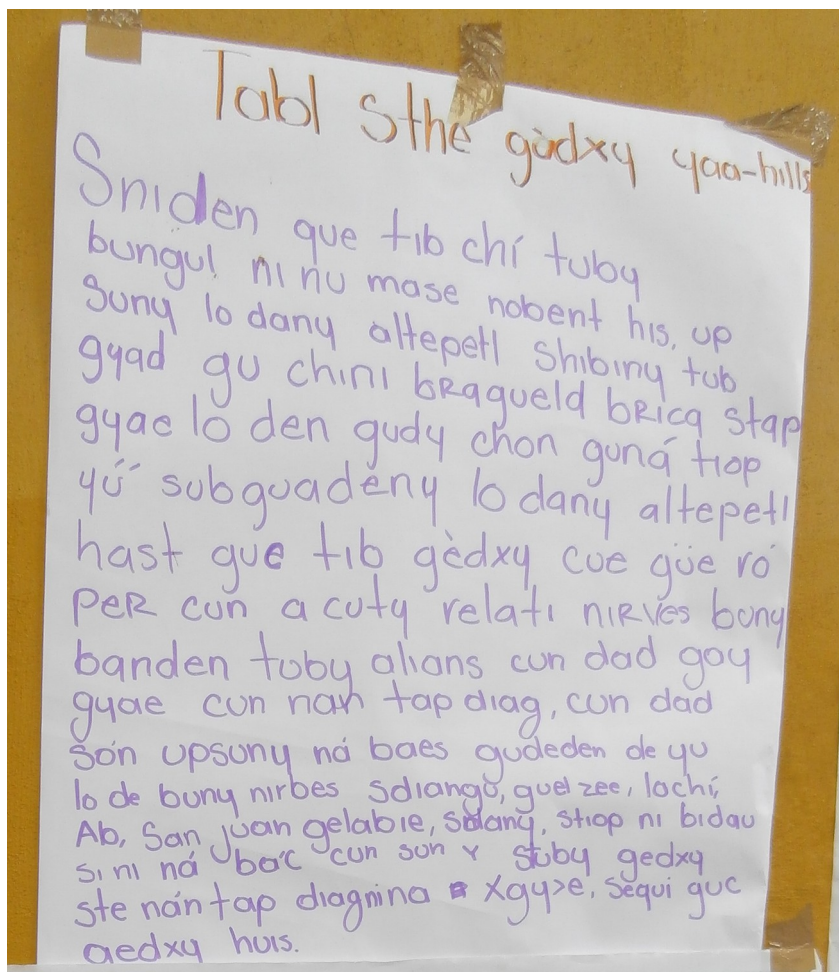 Tabl Sthe gadxy yaa-hills
Sniden que tib chí tuby
bungul ni nu mase nobent his, up
suny lo dany altepetl shibiny tub
gyad gu chini bRagueld bRicq stap
gyae lo den gudy chon guná tiop
yú subguadeny lo dany altepetl
hast gue tib gèdxy cue güe ró
PeR cun a cuty relati niRves bony
banden tuby alians cun dad goy
gyae cun nan tap diag, cun dad
són upsuny ná baes gudeden de yu
lo de buny nirbes sdiangó, guel zee, lachí,
Ab, San juan gelabie, solany, stiop ni bidau
si ni ná bac cun sun y stuby gedxy
ste nán tap diagnina xgy>e, sequi guc
gedxy huis.